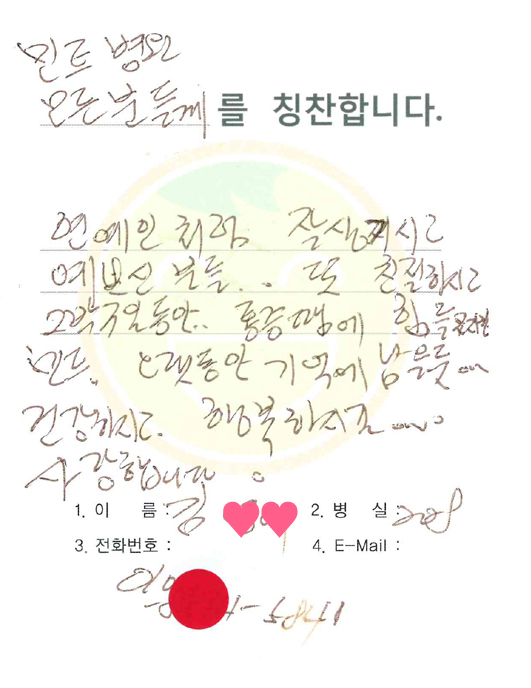 민트 병원
모든분들께 를 칭찬합니다.
연예인처럼 잘생기시고
예쁘신 분들.. 또 친절하시고
2박3일동안.. 통증땜에 힘들었지만
"민트" 오랫동안 기억에 남을듯...
건강하시고. 행복하시고....
사랑합니다.
1. 이 름 : 김 2. 병 실 : 208
3. 전화번호 : 4. E-Mail :